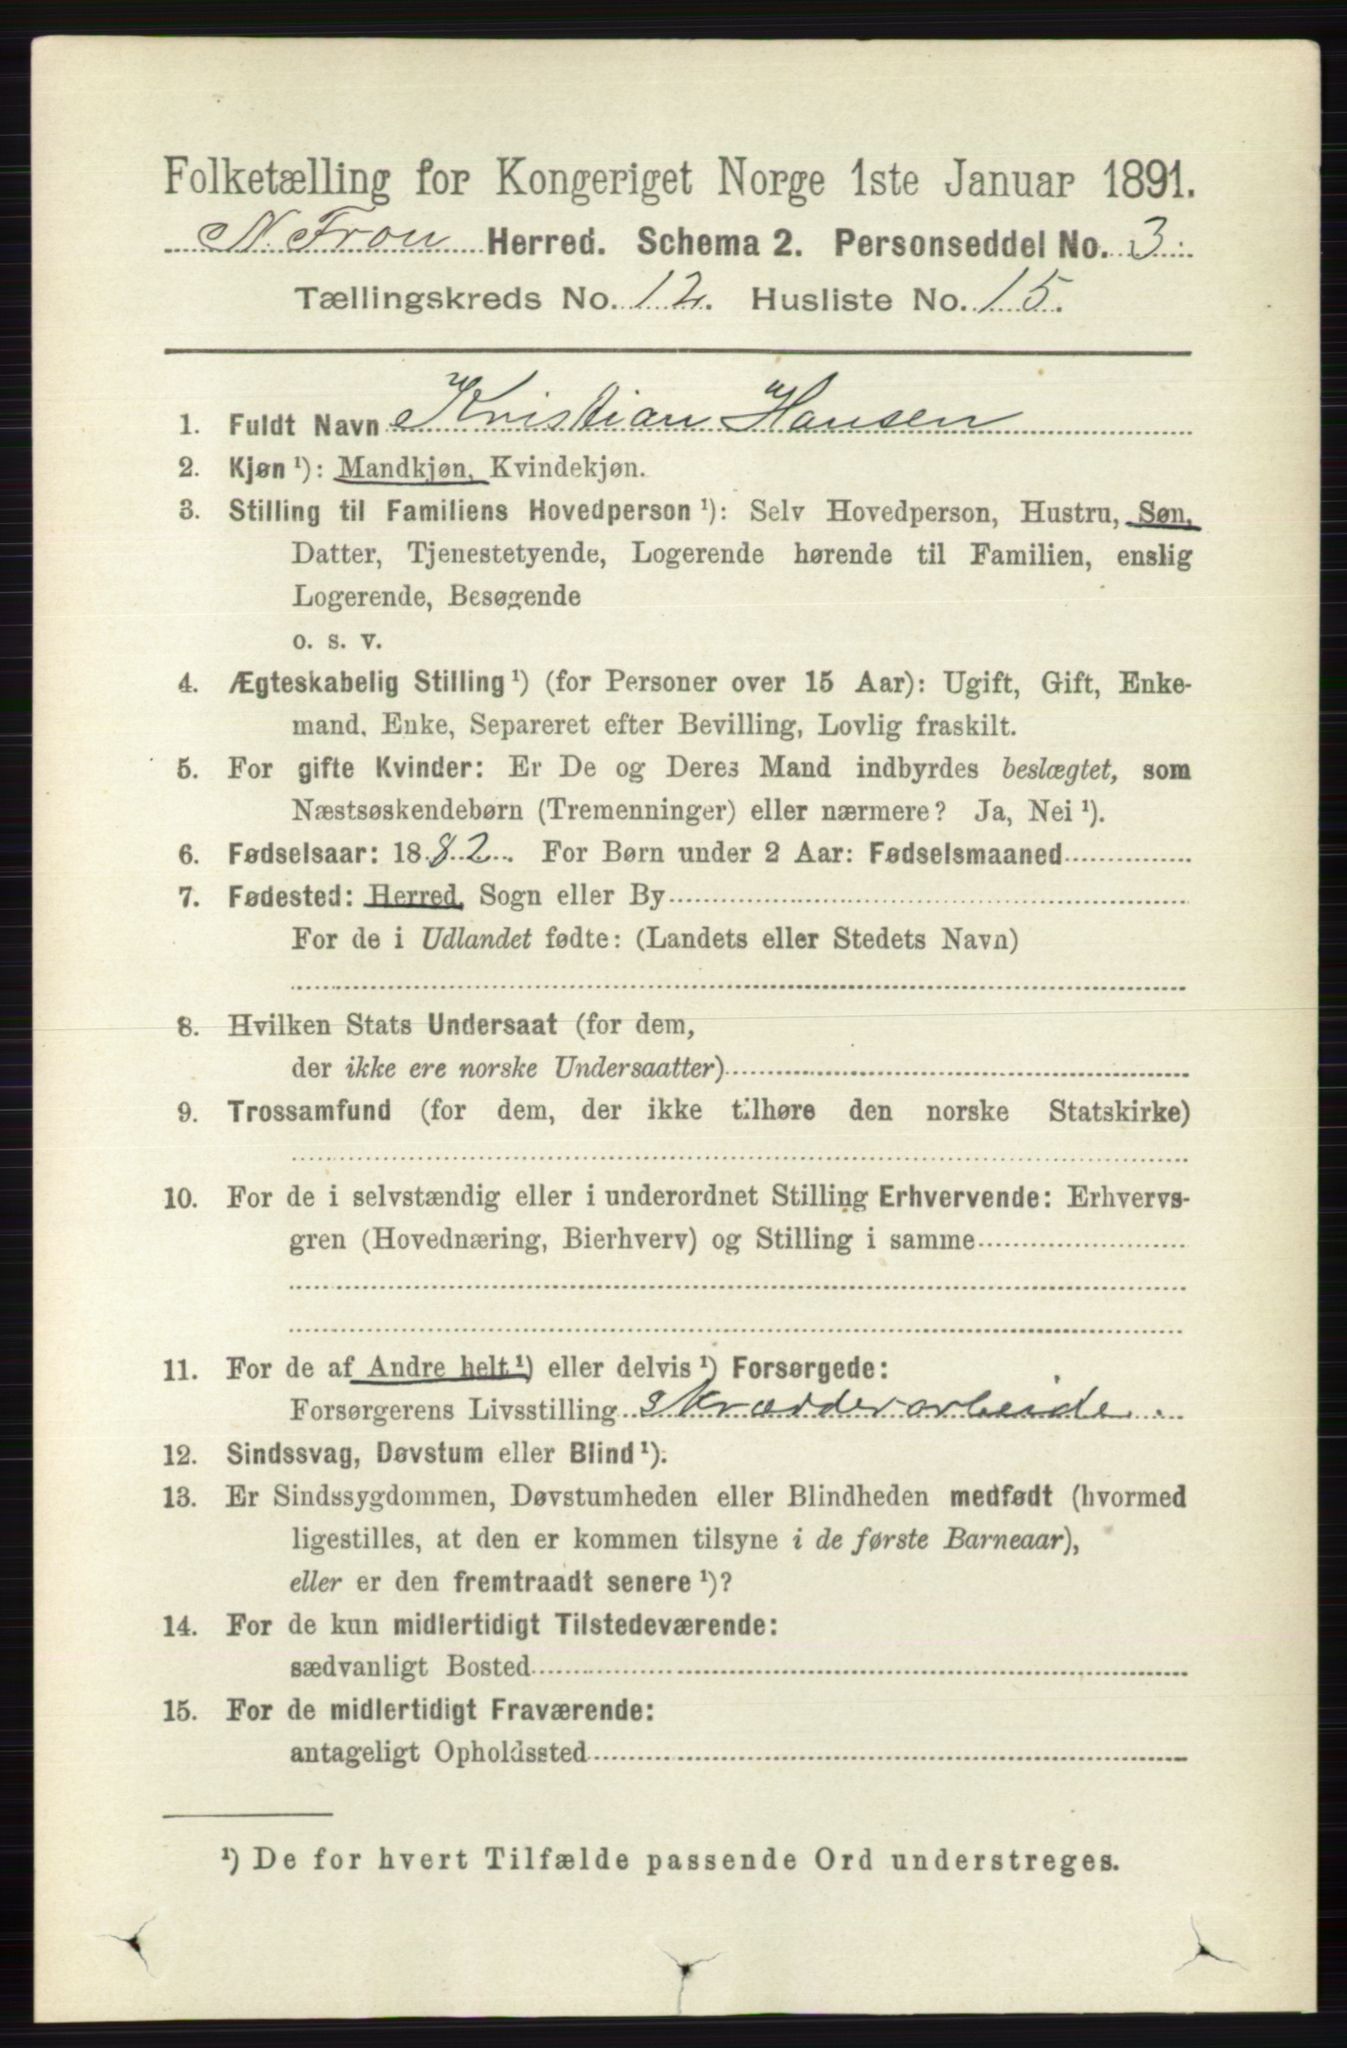 Folketælling for Kongeriget Norge 1ste Januar 1891.
N. Fron Herred. Schema 2. Personseddel No. 3.
Tællingskreds No. 12. Husliste No. 15.
1. Fuldt Navn Kristian Hansen
2. Kjøn ¹): Mandkjøn, Kvindekjøn.
3. Stilling til Familiens Hovedperson ¹): Selv Hovedperson, Hustru, Søn,
Datter, Tjenestetyende, Logerende hørende til Familien, enslig
Logerende, Besøgende
o. s. v.
4. Ægteskabelig Stilling ¹) (for Personer over 15 Aar): Ugift, Gift, Enke-
mand, Enke, Separeret efter Bevilling, Lovlig fraskilt.
5. For gifte Kvinder: Er De og Deres Mand indbyrdes beslægtet, som
Næstsøskendebørn (Tremenninger) eller nærmere? Ja, Nei ¹).
6. Fødselsaar: 1882. For Børn under 2 Aar: Fødselsmaaned
7. Fødested: Herred, Sogn eller By
For de i Udlandet fødte: (Landets eller Stedets Navn)
8. Hvilken Stats Undersaat (for dem,
der ikke ere norske Undersaatter)
9. Trossamfund (for dem, der ikke tilhøre den norske Statskirke)
10. For de i selvstændig eller i underordnet Stilling Erhvervende: Erhvervs-
gren (Hovednæring, Bierhverv) og Stilling i samme
11. For de af Andre helt ¹) eller delvis ¹) Forsørgede:
Forsørgerens Livsstilling skrædderarbeide.
12. Sindssvag, Døvstum eller Blind ¹).
13. Er Sindssygdommen, Døvstumheden eller Blindheden medfødt (hvormed
ligestilles, at den er kommen tilsyne i de første Barneaar),
eller er den fremtraadt senere ¹)?
14. For de kun midlertidigt Tilstedeværende:
sædvanligt Bosted
15. For de midlertidigt Fraværende:
antageligt Opholdssted
¹) De for hvert Tilfælde passende Ord understreges.